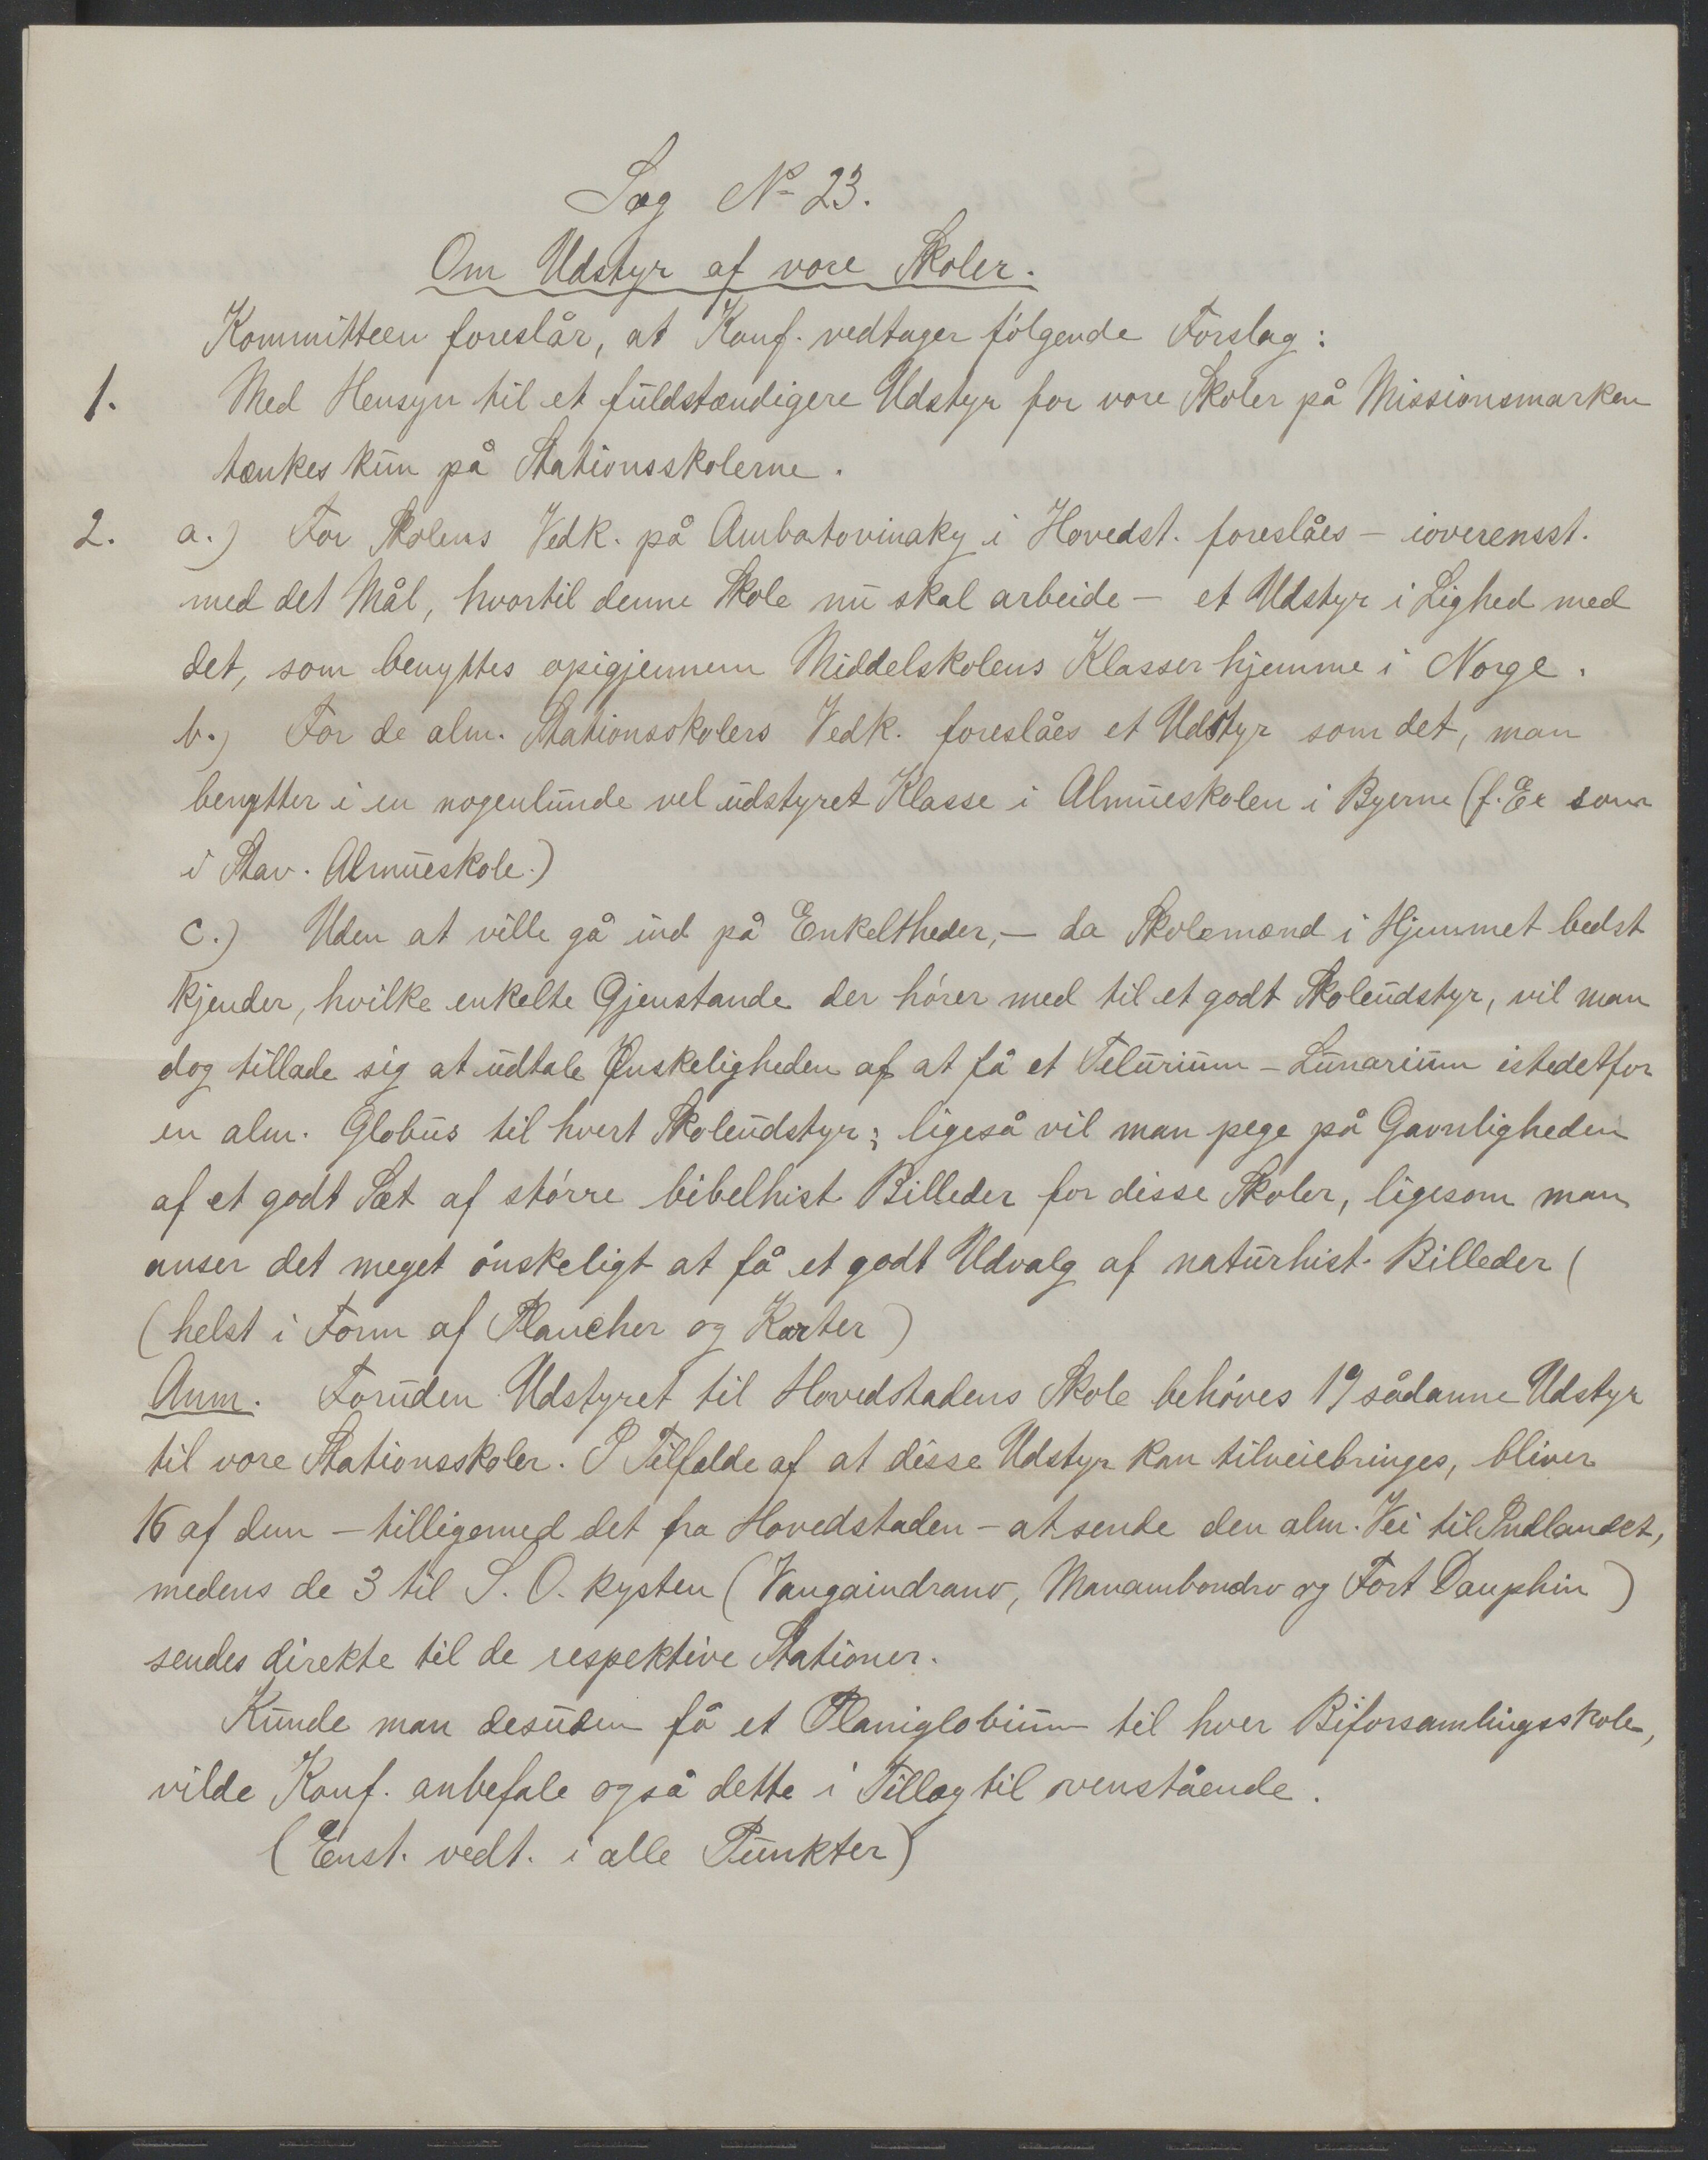 Sag No 23.
Om Udstyr af vore Skoler.
Kommitteen foreslår, at Konf. vedtager følgende Forslag:
1. Med Hensyn til et fuldstændigere Udstyr for vore Skoler på Missionsmarken
tænkes kun på Stationsskolerne.
2. a.) For Skolens Vedk. på Ambatovinaky i Hovedst. foreslåes – ioverensst.
med det Mål, hvortil denne Skole nu skal arbeide – et Udstyr i Lighed med
det, som benyttes opigjennem Middelskolens Klasser hjemme i Norge.
b.) For de alm. Stationsskolers Vedk. foreslåes et Udstyr som det, man
benytter i en nogenlunde vel udstyret Klasse i Almueskolen i Byerne (f. Ex som
i Stav. Almueskole.)
c.) Uden at ville gå ind på Enkeltheder, – da Skolemænd i Hjemmet bedst
kjender, hvilke enkelte Gjenstande der hører med til et godt Skoleudstyr, vil man
dog tillade sig at udtale Ønskeligheden af at få et Telurium – Lunarium istedetfor
en alm. Globus til hvert Skoleudstyr; ligeså vil man pege på Gavnligheden
af et godt Sæt af større bibelhist Billeder for disse Skoler, ligesom man
anser det meget ønskeligt at få et godt Udvalg af naturhist. Billeder (
(helst i Form af Plancher og Karter)
Anm. Foruden Udstyret til Hovedstadens Skole behøves 19 sådanne Udstyr
til vore Stationsskoler. I Tilfælde af at disse Udstyr kan tilveiebringes, bliver
16 af dem – tilligemed det fra Hovedstaden – at sende den alm. Vei til Indlandet,
medens de 3 til S. O. kysten (Vangaindrano, Manambondro og Fort Dauphin)
sendes direkte til de respektive Stationer.
Kunde man desuden få et Planiglobium til hver Biforsamlingsskole,
vilde Konf. anbefale også dette i Tillæg til ovenstående.
(Enst. vedt. i alle Punkter)